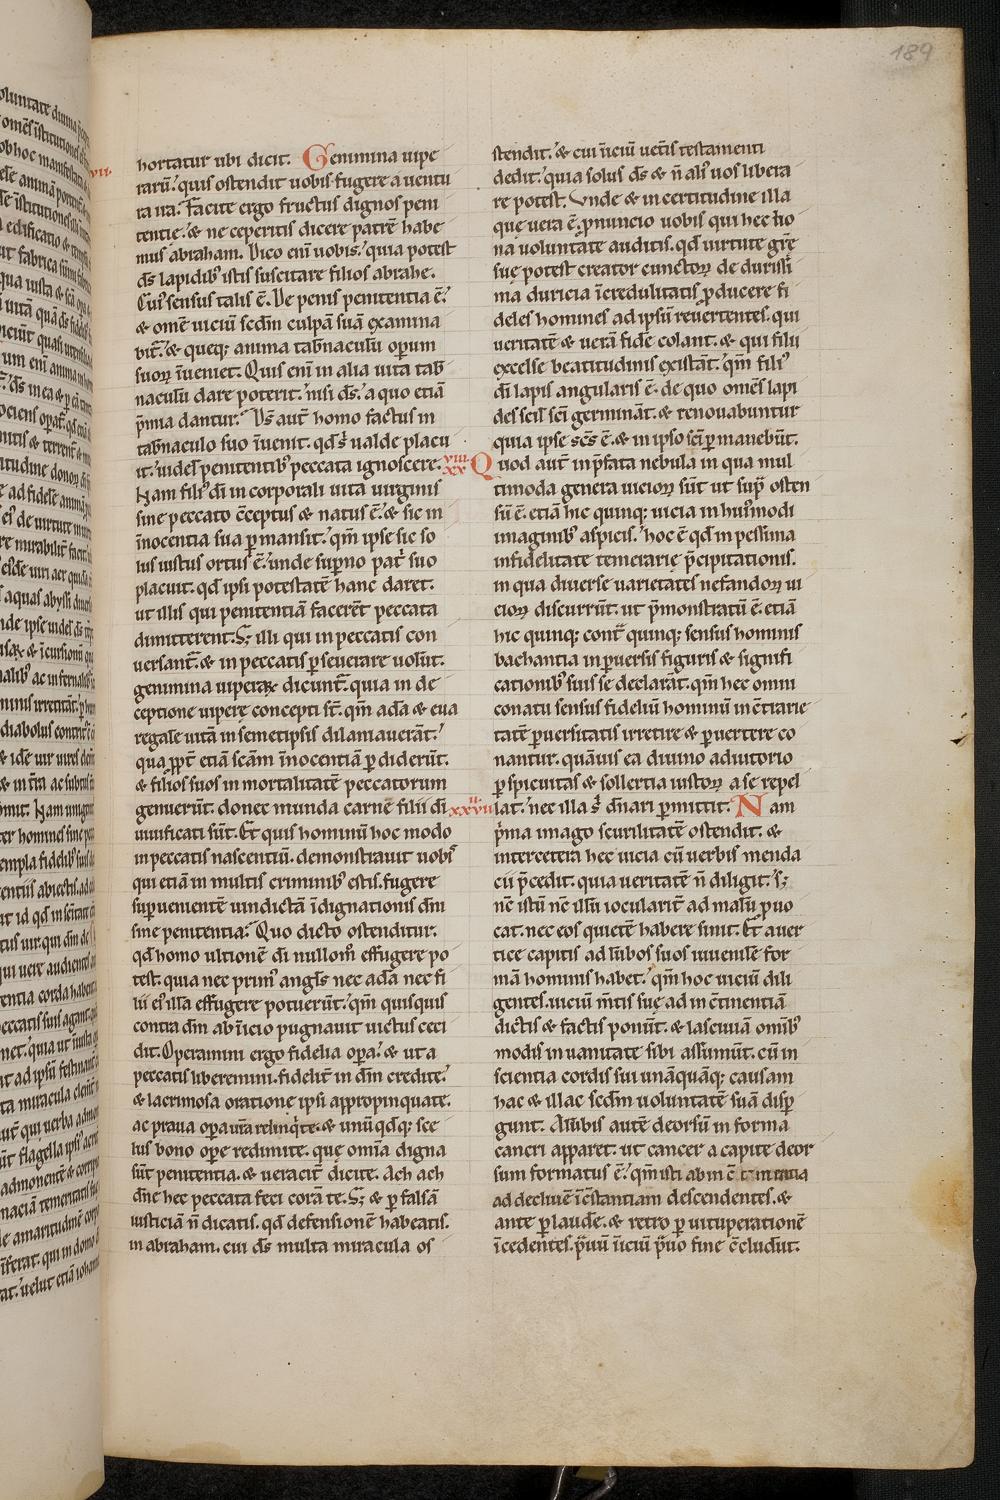 189
hortatur ubi dicit. Genimina uipe
rarū. quis ostendit uobis fugere a uentu
ra ira. Facite ergo fructus dignos peni
tentie. & ne ceperitis dicere patrē habe
mus abraham. Dico eni uobis. quia potest
ds lapidib' istis suscitare filios abrahe.
Cui' sensus talis ē. De penis penitentia ē.
& omē uiciū scdm culpā suā examina
bit. & queq; anima tabnaculū operum
suoꝝ īueniet. Quis eni in alia uita tab
naculū dare poterit. nisi ds. a quo etiā
p̄mia dantur. Ds aut homo factus in
tabnaculo suo īuenit. qd s; ualde placu
it. uidel penitentib' peccata ignoscere.
Nam fili' di in corporali uita uirginis
sine peccato cōceptus & natus ē. & sic in
īnocentia sua pmansit. qm ipse sic so
lus iustus ortus ē. unde supno patri suo
placuit. qd ipsi potestatē hanc daret.
ut illis qui penitentiā facerēt peccata
dimitterent. S; illi qui in peccatis con
uersant. & in peccatis pseuerare uolūt.
genimina uiperaꝝ dicunt. quia in de
ceptione uiperę concepti st. qm ada & eua
regalē uitā in semetipsis dilaniauerāt.
qua ppt etiā scām īnocentiā pdiderūt.
& filios suos in mortalitatē peccatorum
genuerūt. donec munda carnē filii di
uiuificati sūt. Et quis hominū hoc modo
in peccatis nascentiū. demonstrauit uobis
qui etiā in multis criminib' estis. fugere
supuenientē uindictā īdignationis dni
sine penitentia. Quo dicto ostenditur.
qd homo ultionē di nullom effugere po
test. quia nec prim' angls nec adā nec fi
lii ei' illa effugere potuerūt. qm quisquis
contra dm ab īicio pugnauit uictus ceci
dit. Operamini ergo fidelia opa. & ut a
peccatis liberemini. fidelit in dm credite.
& lacrimosa oratione ipsi appropinquate.
ac praua opa uīra relinqite. & unūqdq; sce
lus bono ope redimite. que omīa digna
sūt penitentia. & ueracit dicite. Ach ach
dne hec peccata feci corā te. S; & p falsā
iusticiā n dicatis. qd defensionē habeatis.
in abraham. cui ds multa miracula os
stendit. & cui īiciū uetis testamenti
dedit. quia solus ds & n ali' uos libera
re potest. Vnde & in certitudine illa
que uera ē. pnuncio uobis qui hec bo
na uoluntate auditis. qd uirtute grē
suę potest creator cunctoꝝ de durissi
ma duricia īcredulitatis pducere fi
deles homines ad ipsū reuertentes. qui
ueritatē & uerā fidē colant. & qui filii
excelse beatitudinis existāt. qm fili'
di lapis angularis ē. de quo omēs lapi
des scil sci germināt. & renouabuntur
quia ipse scs ē. & in ipso sci pmanebūt.
xxviii Quod aut in p̄fata nebula in qua mul
timoda genera uicioꝝ sūt ut sup osten
sū ē. etiā hic quinq; uicia in hui'modi
imaginib' aspicis. hoc ē qd in pessima
infidelitate temerarie p̄cipitationis.
in qua diuerse uarietates nefandoꝝ ui
cioꝝ discurrūt. ut p̄monstratū ē. etiā
hic quinq; cont quinq; sensus hominis
bachantia in puersis figuris & signifi
cationib' suis se declarāt. qm hec omni
conatu sensus fideliū hominū in cōtrarie
tatē puersitatis irretire & puertere co
nantur. quāuis ea diuino adiutorio
pspicuitas & sollertia iustoꝝ a se repel
lat. nec illa s; dnari pmittit. Nam
p̄ma imago scurilitatē ostendit. &
inter cetera hec uicia cū uerbis menda
cii p̄cedit. quia ueritatē n diligit. S;
nē istū nē illū iocularit ad malū puo
cat. nec eos quietē habere sinit. Et a uer
tice capitis ad lūbos suos iuuenilē for
mā hominis habet. qm hoc uiciū dili
gentes. uiciū mtis suę ad in cōtinentiā
dictis & factis ponūt. & lasciuiā omib'
modis in uanitate sibi assumūt. cū in
scientia cordis sui unāquāq; causam
hac & illac scdm uoluntatē suā disp
gunt. A lūbis autē deorsū in forma
cancri apparet. ut cancer a capite deor
sum formatus ē. qm isti ab
ad decliuē īcōstantiam descendentes. &
ante plaudē. & retro p uituperationē
īcedentes. p̄uū īiciū p̄uo fine cōcludūt.